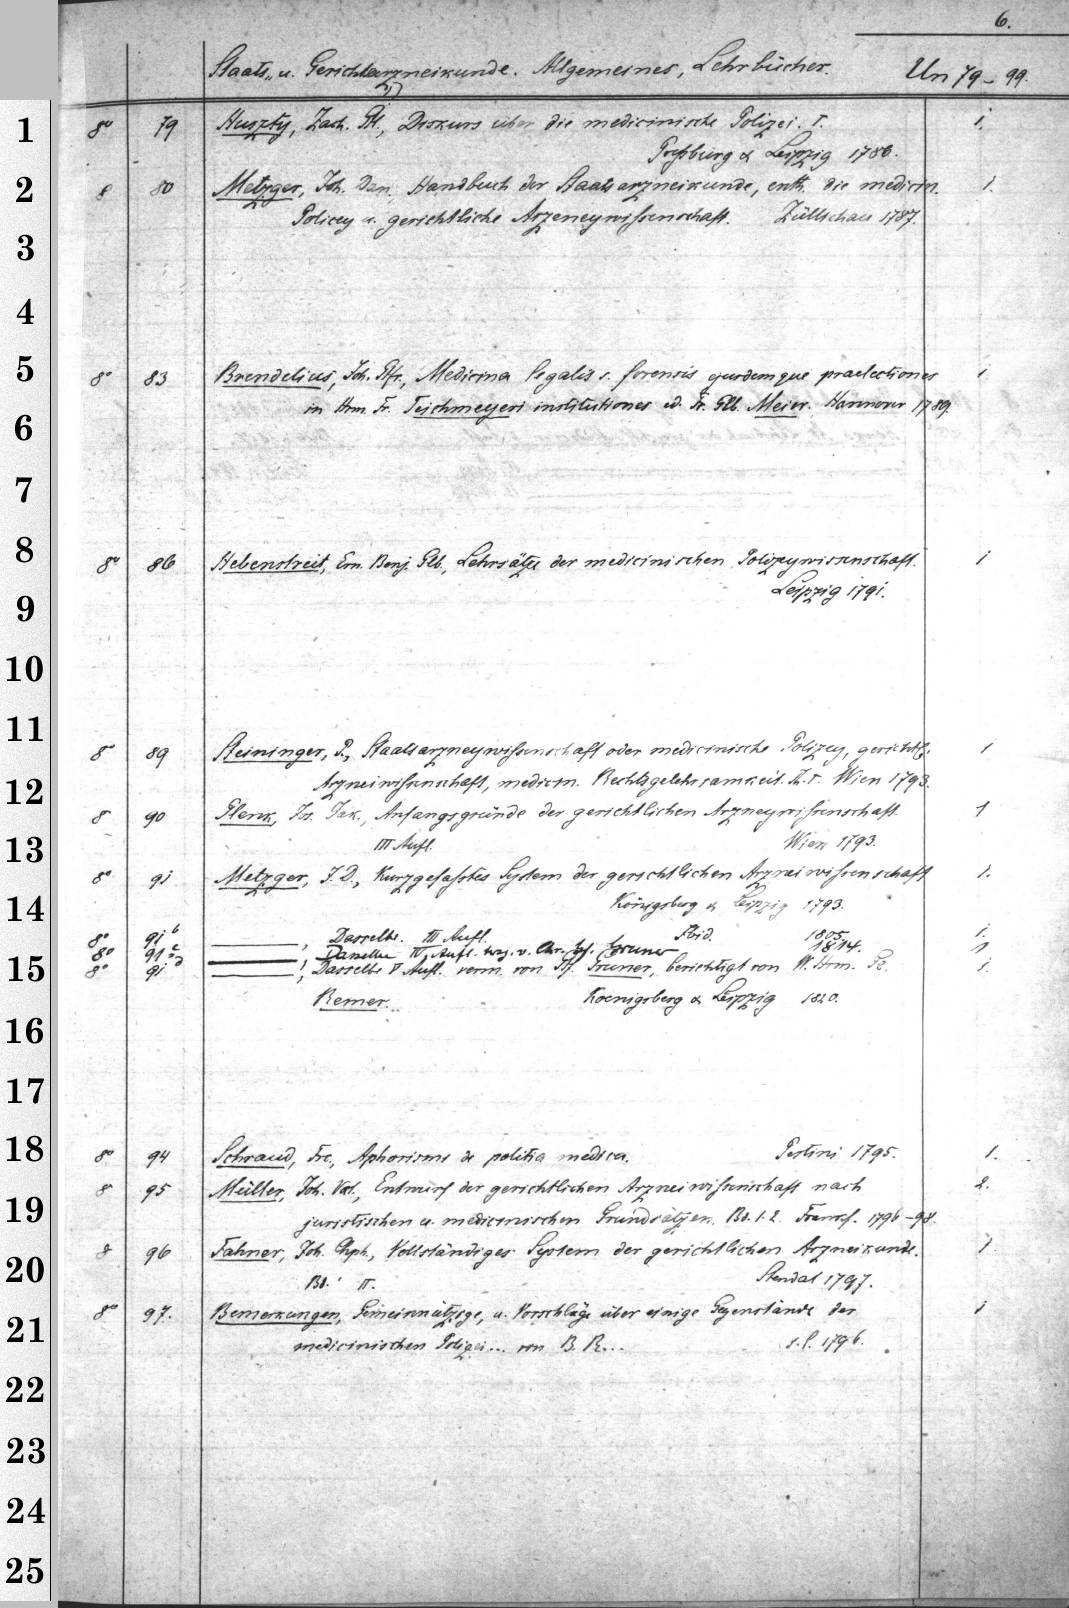 6.
Staats- u. Gerichtsarzneikunde. Allgemeines, Lehrbücher. Un 79-99.
1 8° 79 Huszty, Zach. Gl., Diskurs über die medicinische Polizei. I. 1.
Preßburg & Leipzig 1786.
2 8 80 Metzger, Joh. Dan., Handbuch der Staatsarzneikunde, enth. die medicin. 1.
Policey u. gerichtliche Arzeneywissenschaft. Züllichau 1787.
3
4
5 8° 83 Brendelius, Joh. Gfr., Medicina legalis s. forensis ejusdemque praelectiones 1
in Hrm. Fr. Teichmeyeri institutiones ed. Fr. Glb. Meier. Hannover 1789.
6
7
8 8° 86 Hebenstreit, Ern. Benj. Glb., Lehrsätze der medicinischen Polizeywissenschaft. 1
Leipzig 1791.
9
10
11 8° 89 Steininger, P., Staatsarzneywissenschaft oder medicinische Polizey, gerichtl. 1
12 Arzneiwissenschaft, medicin. Rechtsgelehrsamkeit. Th. I. Wien 1793.
8 90 Plenk, Jos. Jak., Anfangsgründe der gerichtlichen Arzneywissenschaft. 1
13 III Aufl. Wien 1793.
8° 91 Metzger, J. D., Kurzgefasstes System der gerichtlichen Arzneiwissenschaft 1.
14 Königsberg & Leipzig 1793.
8° 91b ———, Dasselbe. III Aufl. Ibid. 1805. 1.
8° 91c ———, Dasselbe IV. Aufl. v. Chr. Gf. Gruner 1814. 1
15 8° 91d ———, Dasselbe V Aufl. verm. von Gf. Gruner, berichtigt von W. Hrm. Ge. 1.
Remer. Koenigsberg & Leipzig 1820.
16
17
18 8° 94 Schraud, Frc., Aphorismi de politia medica. Pestini 1795. 1.
8 95 Müller, Joh. Val., Entwurf der gerichtlichen Arzneiwissenschaft nach 2.
19 juristischen u. medicinischen Grundsätzen. Bd. 1.2. Francf. 1796-98.
8 96 Fahner, Joh. Chph., Vollständiges System der gerichtlichen Arzneikunde. 1
20 Bd. II. Stendal 1797.
8° 97. Bemerkungen, Gemeinnützige, u. Vorschläge über einige Gegenstände der 1
21 medicinischen Polizei... von B. R... s.l. 1796.
22
23
24
25